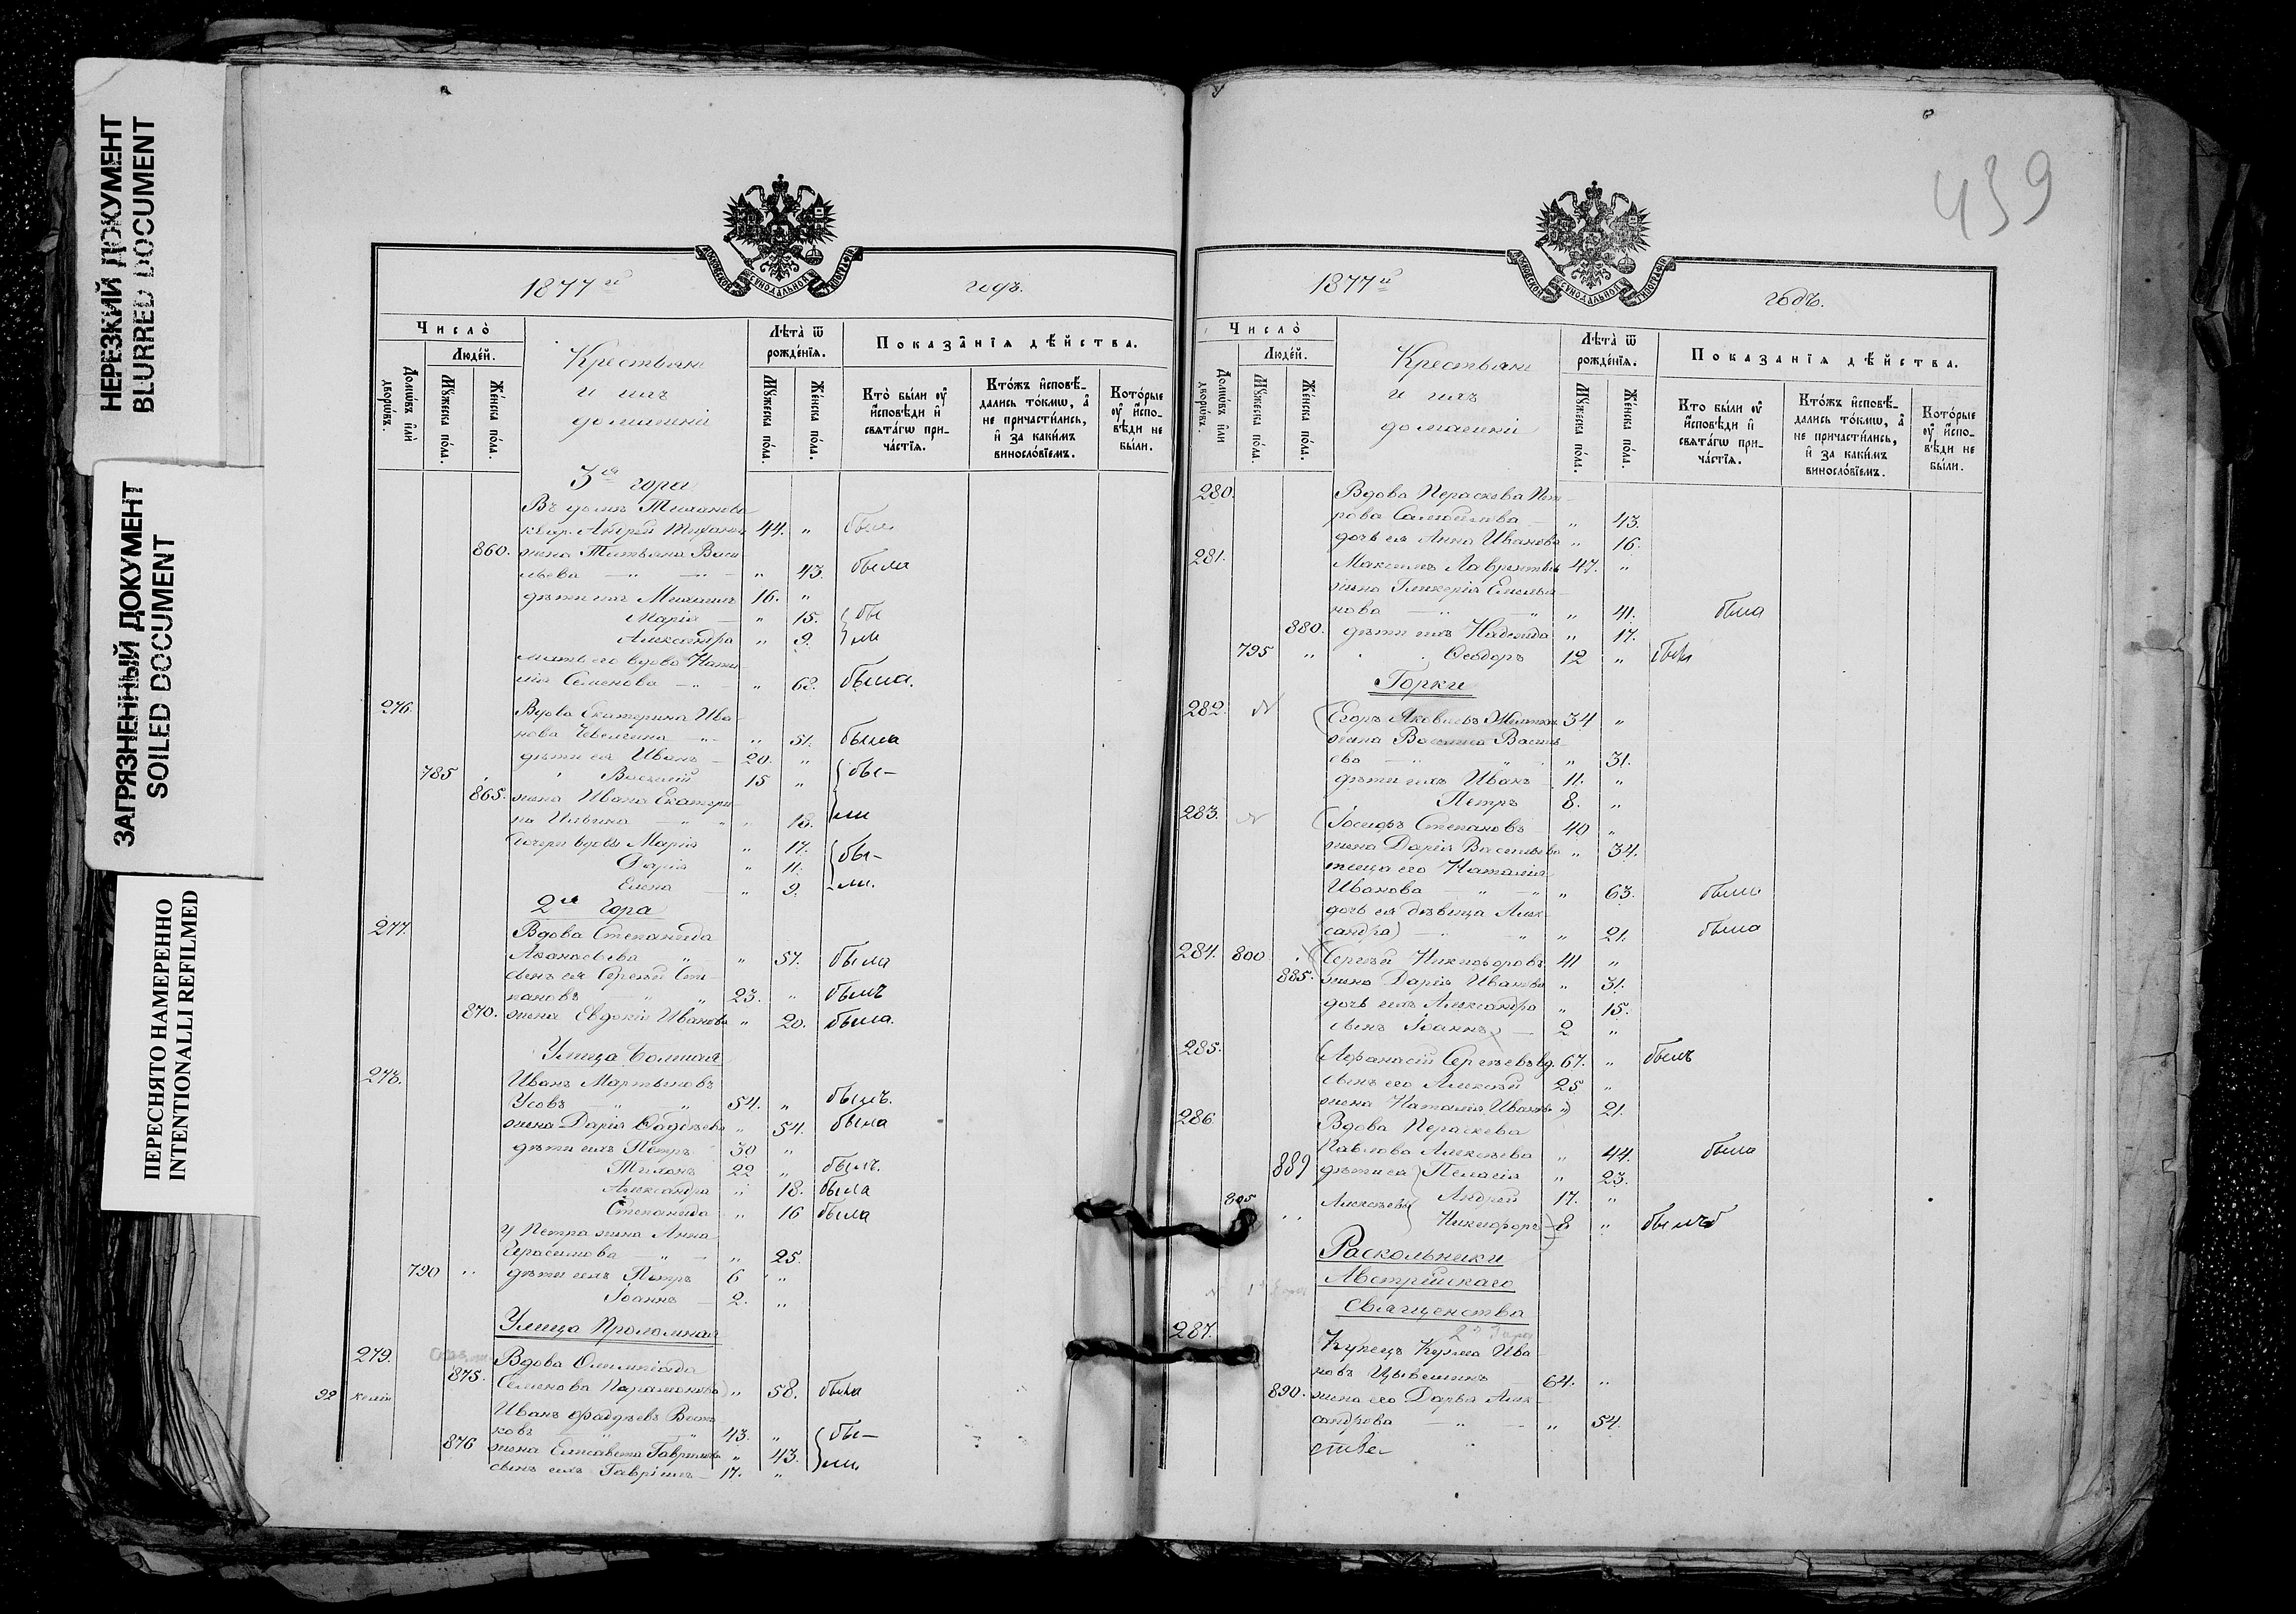 НЕРЕЗКИЙ ДОКУМЕНТ
BLURRED DOCUMENT
ЗАГРЯЗНЕННЫЙ ДОКУМЕНТ
SOILED DOCUMENT
ПЕРЕСНЯТО НАМЕРЕННО
INTENTIONALLI REFILMED
МОСКОВСКОЙ СѴНОДАЛЬНОЙ ТИПОГРАФІИ
1877й годъ.
Число̀
Людей.
Домѡвъ и҆лѝ дворѡвъ.
Мꙋжеска пола.
Женска пола.
Крестьяне
и ихъ
домашніе
Лѣта̀ ѿ рожде́нїѧ.
Мꙋжеска пола.
Женска пола.
Показа̂нїѧ дѣйства.
Кто̀ бы́ли ᲂу҆ и҆сповѣди и҆ свѧта́гѡ причастїѧ.
Кто́жъ и҆сповѣдались то́кмѡ, а҆ не причасти́лись, и҆ за каки́мъ винослов́їемъ.
Кото́рые ᲂу҆ и҆сповѣди не бы́ли.
3я гора
Въ домѣ Тиханова
квар. Андрей Тихонов 44. " былъ
860. жена Татьяна Васи
льева — " — " 43. была
дѣти ихъ Михаилъ 16. "
Марія — " 15. бы
Александра " 9. ли
мать его вдова Ната
лія Семенова — " — " 62. была.
276. Вдова Екатерина Ива
нова — " — " 51. была
дѣти ея Иванъ — 20. "
785 " Василій 15 " бы—
865. жена Ивана Екатери
на Ильина — " " 18. ли
дочери вдовы Марія " 17. бы—
Дарія " 11.
Елена — " 9. ли.
2я Гора
277. Вдова Степанида
Аѳанасьева " — " 57. была
сынъ ея Сергѣй Сте
пановъ " " 23. " былъ
870. жена Евдокія Иванова " 20. была.
Улица Большая
278. Иванъ Мартыновъ
Усовъ — " — " 54. " былъ.
жена Дарія Ѳаддѣева " 54. была
дѣти ихъ Петръ — 30 "
Тихонъ 22 " былъ.
Александра " 18. была
Степанида " 16 была
у Петра жена Анна
Герасимова — " — " 25.
790 " дѣти ихъ Петръ 6 "
Іоаннъ — 2. "
Улица Проломная
279. Вдова Олимпіада
875. Семенова Парамонова " 58. была
Иванъ Ѳаддѣевъ
ковъ " " 43. " бы—
876 жена Елисавета Гаврилова " 43. ли.
сынъ ихъ Гавріилъ — 17. "
439
МОСКОВСКОЙ СѴНОДАЛЬНОЙ ТИПОГРАФІИ
1877й годъ.
Число̀
Людей.
Домѡвъ и҆лѝ дворѡвъ.
Мꙋжеска пола.
Женска пола.
Крестьяне
и ихъ
домашніе
Лѣта̀ ѿ рожде́нїѧ.
Мꙋжеска пола.
Женска пола.
Показанїѧ дѣйства.
Кто бы́ли ᲂу҆ и҆сповѣди и҆ свѧта́гѡ причастїѧ.
Кто́жъ и҆сповѣдались то́кмѡ, а҆ не причасти́лись, и҆ за каки́мъ винослов́їемъ.
Кото́рые ᲂу҆ и҆сповѣди не бы́ли.
280. Вдова Параскева Пет
рова — " 43.
дочь ея Анна Иванова " 16.
281. Максимъ Лаврентьевъ 47. "
жена Гликерія Емелья
нова — " " 41. была
880. дѣти ихъ Надежда " 17.
795 " " Ѳеодоръ 12 " былъ
Горки
282. Егоръ Яковлевъ 34 "
жена Василиса Василь
ева — " " 31.
дѣти ихъ Иванъ 11. "
Петръ 8. "
283. Іосифъ Степановъ — 40 "
жена Дарія Васильева " 34.
теща его Наталія
Иванова — " — " 63. была
дочь ея дѣвица Алек
сандра — " " 21. была
284. 800 Сергѣй Никифоровъ 41 "
885. жена Дарія Иванова " 31.
дочь ихъ Александра " 15.
сынъ Іоаннъ — 2 "
285. Аѳанасій Сергѣевъ вд. 67. " былъ
сынъ его Алексѣй 25 "
жена Наталія Иванова " 21.
286. Вдова Параскева
Павлова Алексѣева " 44. была
889 дѣти ея Пелагія " 23.
805 Алексѣевы Андрей 17. "
" Никифоръ — 8 " былъ
Раскольники
Австрійскаго
священства
2я Гора
287. Купецъ Кузма Ива
новъ Цывелинъ — 64. "
890. жена его Дарья Алек
сандрова — " — " 54.